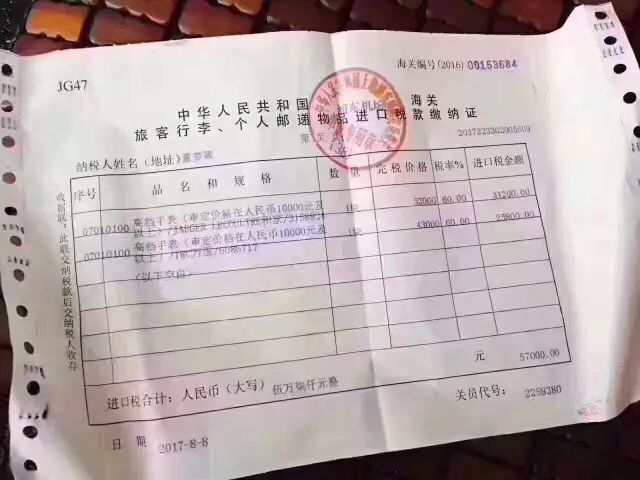 JG47
海关编号(2016) 00153684
中华人民共和国 浦东机场 海关
旅客行李、个人邮递物品进口税款缴纳证
第 页
2017223302005609
纳税人姓名（地址）
序号 品名和规格 数量 完税价格 税率% 进口税金额
07010100 高档手表（审定价格在人民币10000元及以上）/JAEGER LECOULTRE积家/3158924 1块 52000 60.00 31200.00
07010100 高档手表（审定价格在人民币10000元及以上）/IWC/万国/6086717 1块 43000 60.00 25800.00
(以下空白)
进口税合计：人民币（大写）伍万柒仟元整 元 57000.00
日期 2017-8-8 关员代号： 2258380
收据联：此联交纳税款后交纳税人收存